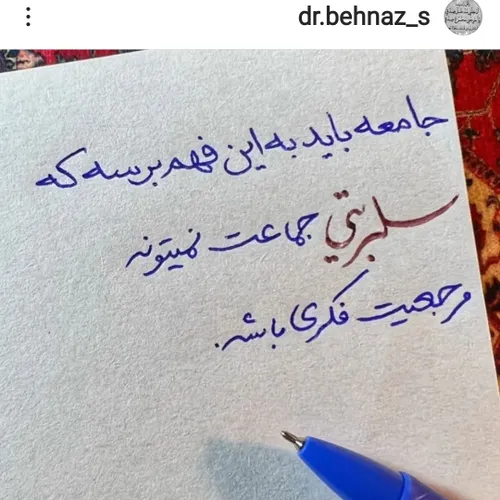 dr.behnaz_s
جامعه باید به این فهم برسه که
سلبریتي جماعت نمیتونه
مرجعیت فکری باشه.